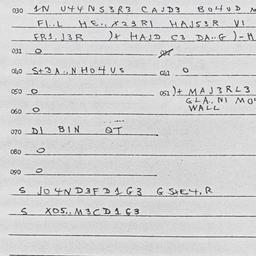 030 1N U44NS3R3 CAJD3 BO4UD M
FI.L HE., X23RI HAJ53R VI
FR1.J3R )+ HAJD C3 DA..G )-H
031 0
040 S+3A.,NHO4US 041 0
050 0 051 )+ MAJ3RL3
GLA.NI MO
WALL
060 0
070 DI BIN QT
080 0
090 0
S JO4ND3FD1G3 GS+E4.R
S XO5..M3CD1G3